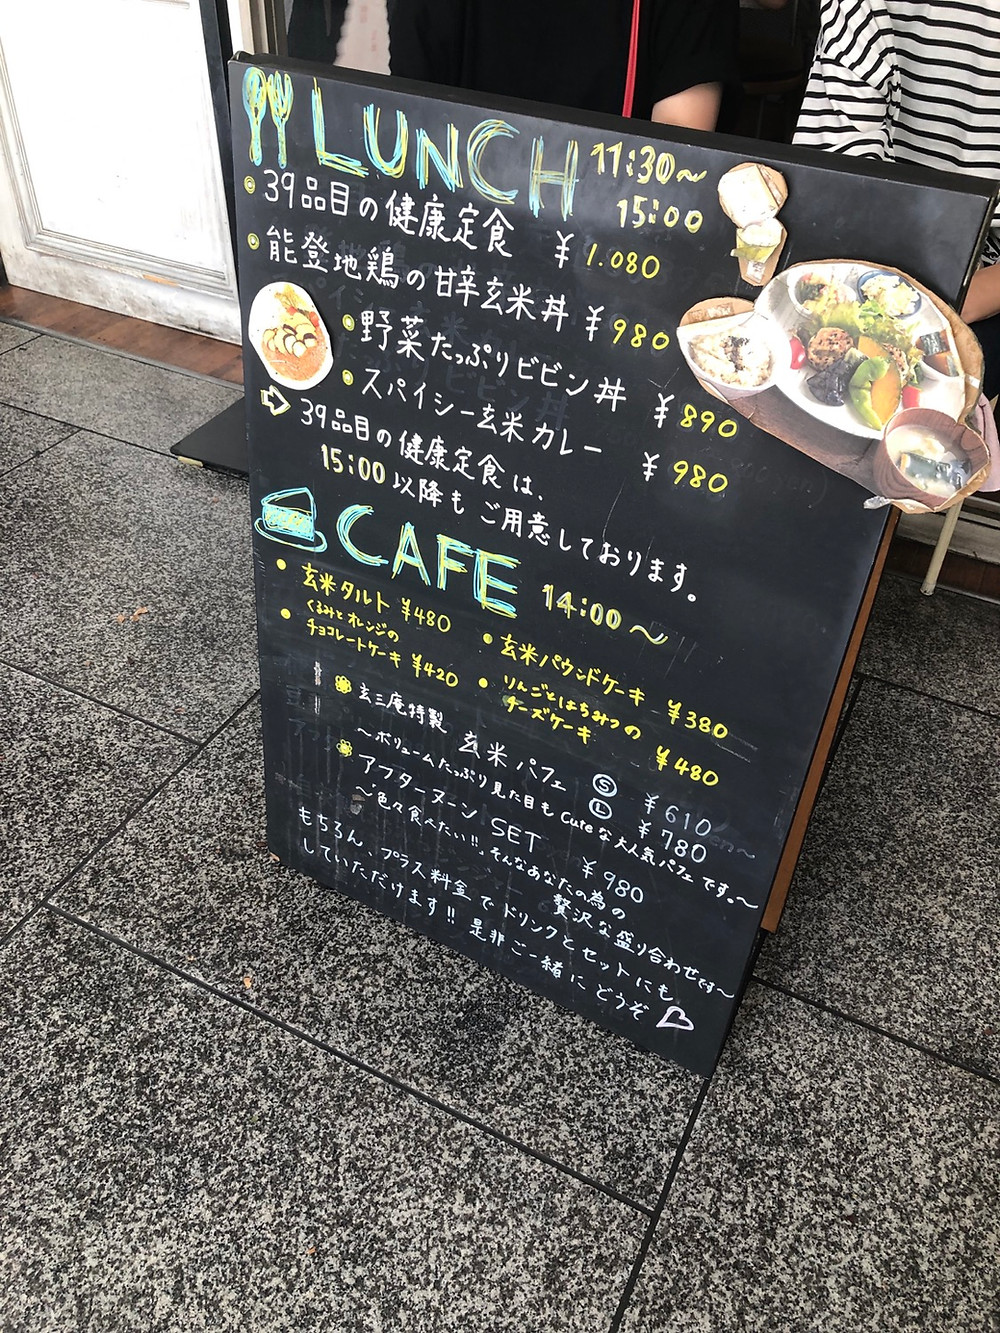 LUNCH 11:30～15:00
39品目の健康定食 ¥1.080
能登地鶏の甘辛玄米丼 ¥980
野菜たっぷりビビン丼 ¥890
スパイシー玄米カレー ¥980
39品目の健康定食は、
15:00以降もご用意しております。
CAFE 14:00～
玄米タルト ¥480
くるみとオレンジの
チョコレートケーキ ¥420
玄米パウンドケーキ ¥380
りんごとはちみつの
チーズケーキ ¥480
玄三庵特製 玄米パフェ Ⓢ ¥610
Ⓛ ¥780
～ボリュームたっぷり見た目もCuteな大人気パフェです。～
アフタヌーンSET ¥980
～色々食べたい!!、そんなあなたの為の
贅沢な盛り合わせです～
もちろん、プラス料金でドリンクとセットにも
していただけます!! 是非ご一緒にどうぞ♡